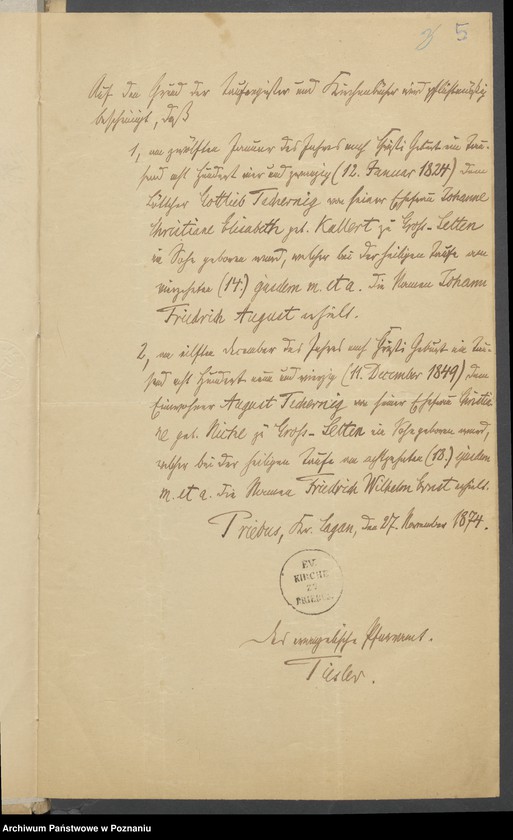 5
Auf den Grund der Taufregister und Kirchenbücher wird pflichtmäßig
bescheinigt, daß
1, am zwölften Januar des Jahres nach Christi Geburt ein Tau-
send acht hundert vier und zwanzig (12. Januar 1824) dem
Gottlieb Tschernig von seiner Ehefrau Johanne
Christiane Elisabeth geb. Kallert zu Groß-Selten
ein Sohn geboren ward, welcher bei der heiligen Taufe am
vierzehnten (14.) ejusdem m. et a. die Namen Johann
Friedrich August erhielt.
2, am eilften December des Jahres nach Christi Geburt ein Tau-
send acht hundert neun und vierzig (11. December 1849) dem
Einwohner August Tschernig von seiner Ehefrau Christia-
ne geb. Nicke zu Groß-Selten ein Sohn geboren ward,
welcher bei der heiligen Taufe am achtzehnten (18.) ejusdem
m. et a. die Namen Friedrich Wilhelm Ernst erhielt.
Priebus, Kr. Sagan, den 27. November 1874.
EV.
KIRCHE
ZU
PRIEBUS
Das evangelische Pfarramt.
Tiesler.
Archiwum Państwowe w Poznaniu